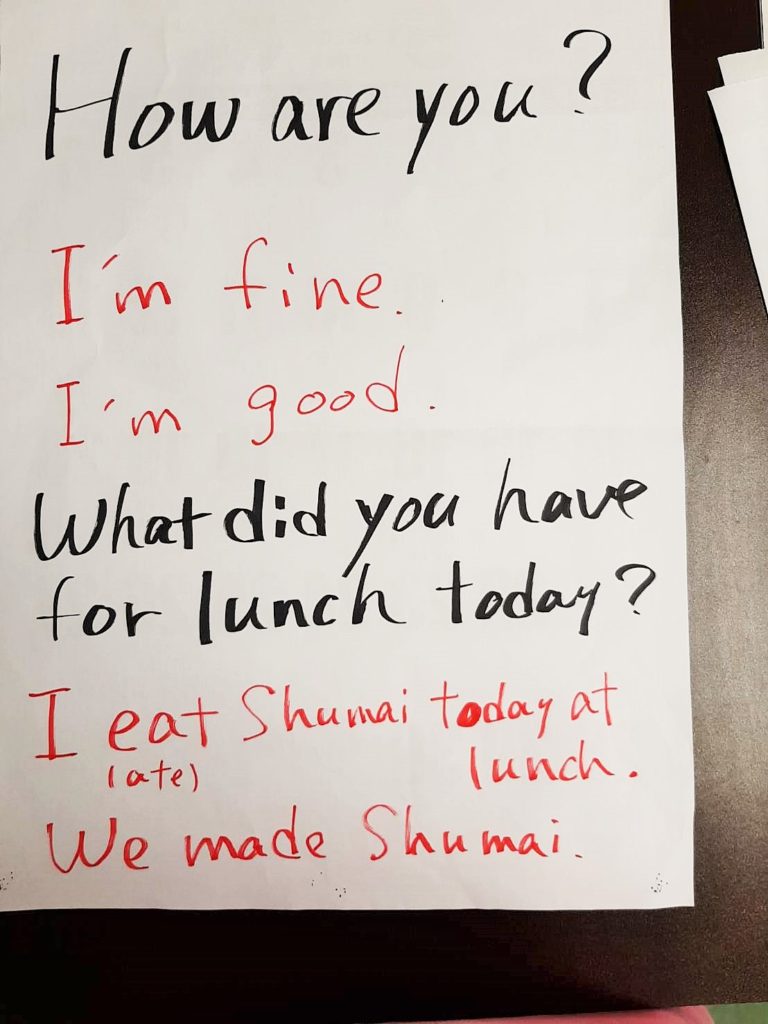 How are you?
I'm fine.
I'm good.
What did you have
for lunch today?
I eat Shumai today at
(ate) lunch.
We made Shumai.